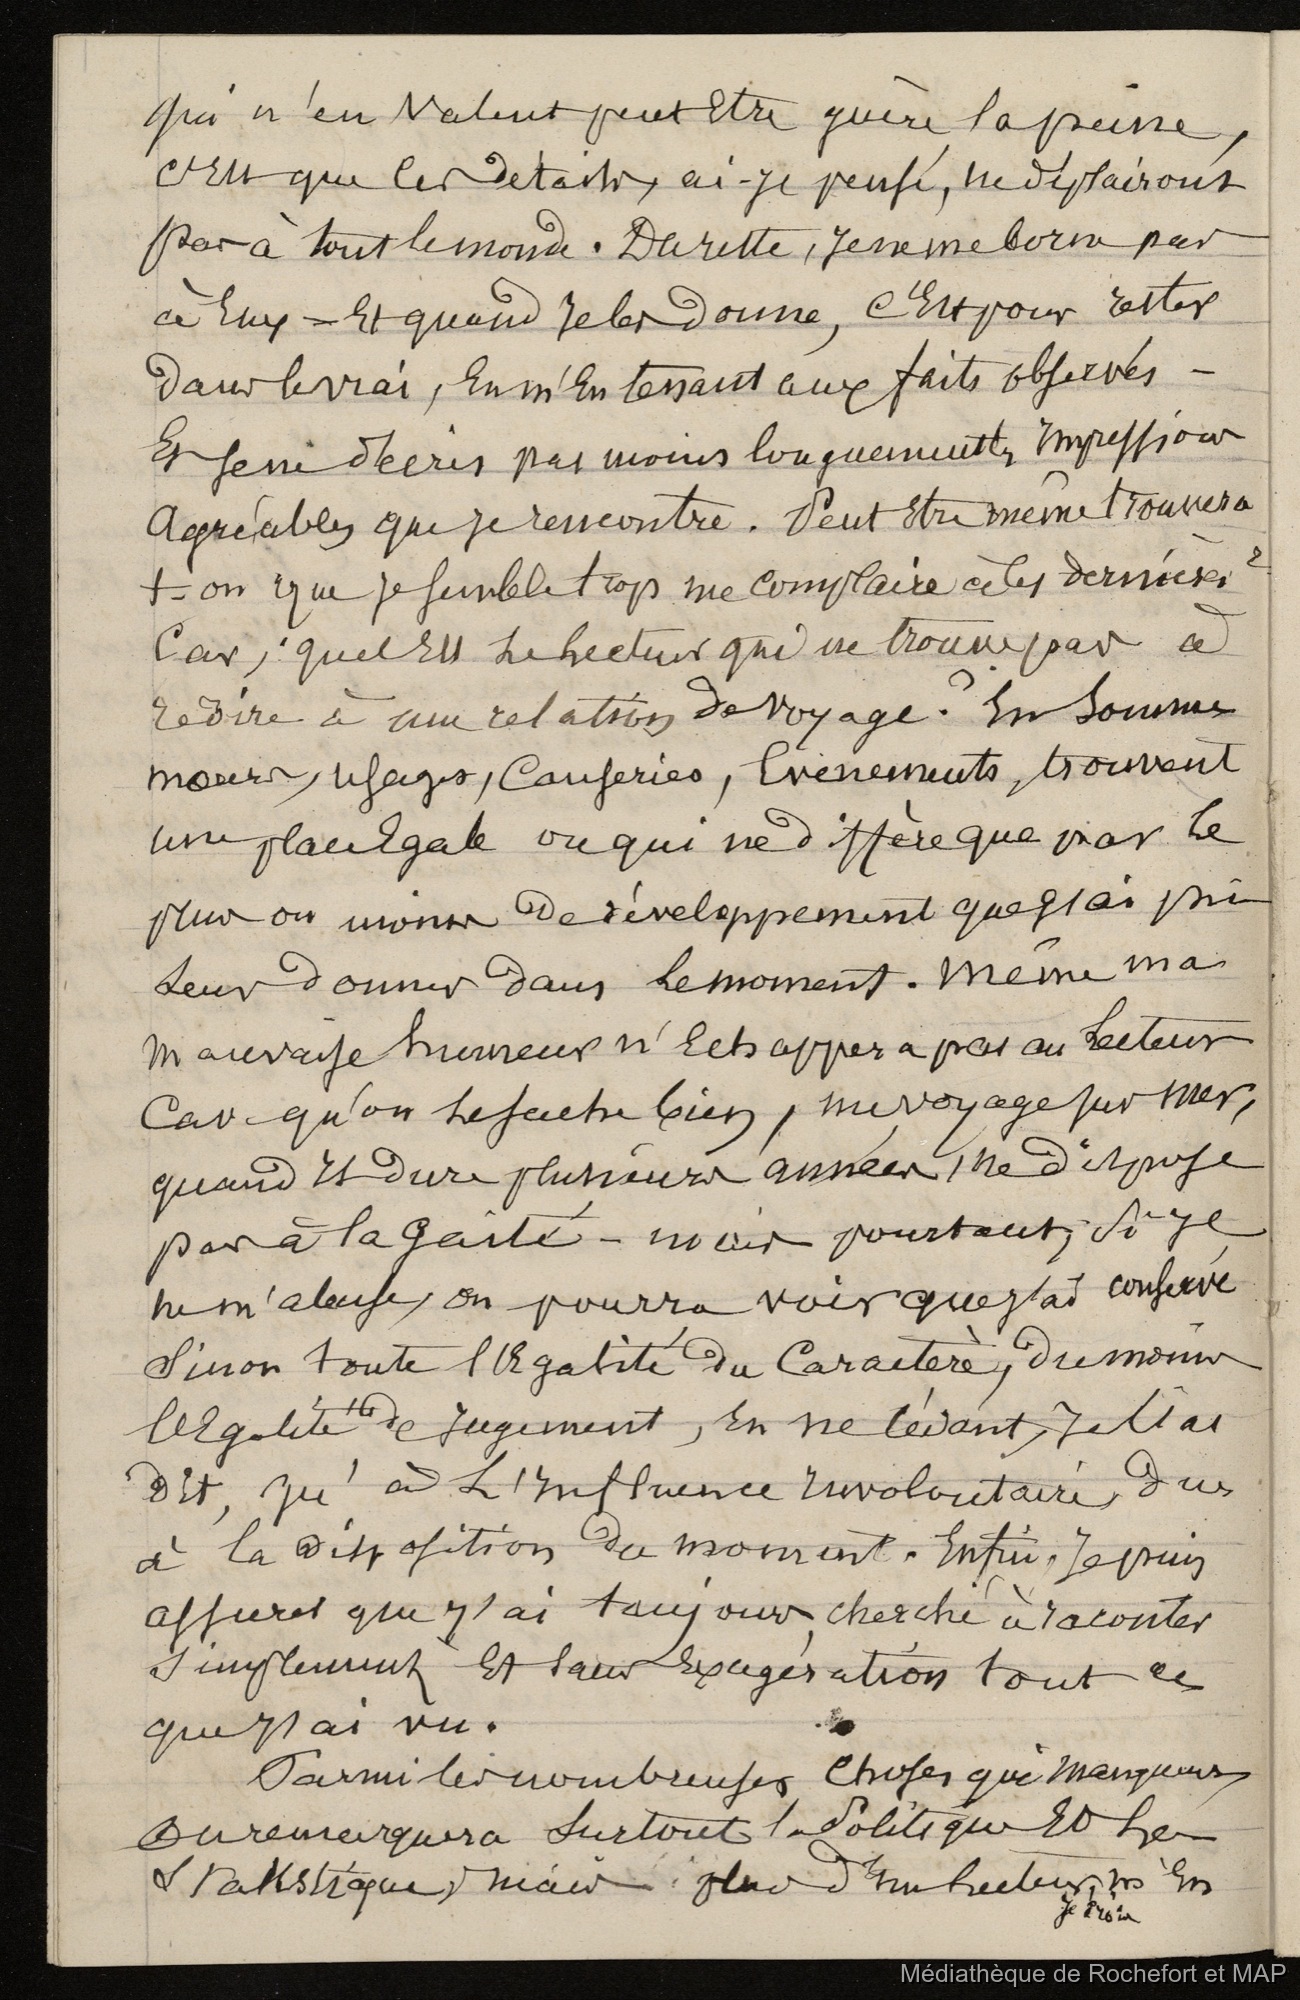 qui n'en valent peut Etre guère la peine,
C'Est que les détails, ai-je pensé, ne déplairont
pas à tout le monde. Du reste, Je ne me borne pas
à Eux = Et quand Je les donne, C'Est pour rester
dans le vrai, En m'En tenant aux faits observés -
Et Je ne décris pas moins longuement les Impressions
Agréables que Je rencontre. Peut Etre même trouvera
t-on que Je semble trop me complaire à les dernières ?
Car, quel Est Le Lecteur qui ne trouve pas à
redire à une relation de voyage ? En Somme
mœurs, usages, Causeries, Evènements, trouvent
une place Egale ou qui ne diffère que par Le
plus ou moins de développement que J'ai pu
Leur donner dans Le moment. Même ma
mauvaise humeur n'Echappera pas au Lecteur
Car qu'on Le sache bien, un voyage sur mer,
quand Il dure plusieurs années, ne dispose
pas à la Gaîté - mais pourtant, Si Je
ne m'abuse, on pourra voir que J'ai conservé
Sinon toute l'Egalité du Caractère, du moins
l'Egalité de Jugement, En ne cédant, Je l'ai
dit, qu'à L'Influence Involontaire, due
à la disposition du moment. Enfin, Je puis
assurer que J'ai toujours cherché à raconter
Simplement Et Sans Exagération tout ce
que J'ai vu.
Parmi les nombreuses Choses qui manquent
On remarquera Surtout la Politique Et La
Statistique, mais plus d'Un Lecteur, m'En